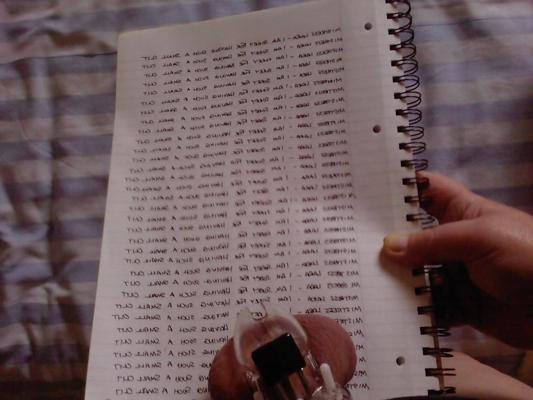 MISTRESS - I AM SORRY FOR HAVING SUCH A SMALL CLIT
MISTRESS - I AM SORRY FOR HAVING SUCH A SMALL CLIT
MISTRESS - I AM SORRY FOR HAVING SUCH A SMALL CLIT
MISTRESS - I AM SORRY FOR HAVING SUCH A SMALL CLIT
MISTRESS - I AM SORRY FOR HAVING SUCH A SMALL CLIT
MISTRESS - I AM SORRY FOR HAVING SUCH A SMALL CLIT
MISTRESS - I AM SORRY FOR HAVING SUCH A SMALL CLIT
MISTRESS - I AM SORRY FOR HAVING SUCH A SMALL CLIT
MISTRESS - I AM SORRY FOR HAVING SUCH A SMALL CLIT
MISTRESS - I AM SORRY FOR HAVING SUCH A SMALL CLIT
MISTRESS - I AM SORRY FOR HAVING SUCH A SMALL CLIT
MISTRESS - I AM SORRY FOR HAVING SUCH A SMALL CLIT
MISTRESS - I AM SORRY FOR HAVING SUCH A SMALL CLIT
MISTRESS - I AM SORRY FOR HAVING SUCH A SMALL CLIT
MISTRESS - I AM SORRY FOR HAVING SUCH A SMALL CLIT
MISTRESS - I AM SORRY FOR HAVING SUCH A SMALL CLIT
MISTRESS - I AM SORRY FOR HAVING SUCH A SMALL CLIT
MISTRESS - I AM SORRY FOR HAVING SUCH A SMALL CLIT
MISTRESS - I AM SORRY FOR HAVING SUCH A SMALL CLIT
MISTRESS - I AM SORRY FOR HAVING SUCH A SMALL CLIT
MISTRESS - I AM SORRY FOR HAVING SUCH A SMALL CLIT
MISTRESS - I AM SORRY FOR HAVING SUCH A SMALL CLIT
MISTRESS - I AM SORRY FOR HAVING SUCH A SMALL CLIT
MISTRESS - I AM SORRY FOR HAVING SUCH A SMALL CLIT
MISTRESS - I AM SORRY FOR HAVING SUCH A SMALL CLIT
MISTRESS HAVING SUCH A SMALL CLIT
MISTRESS HAVING SUCH A SMALL CLIT
SUCH A SMALL CLIT
SUCH A SMALL CLIT
SUCH A SMALL CLIT
SUCH A SMALL CLIT
SUCH A SMALL CLIT
SUCH A SMALL CLIT